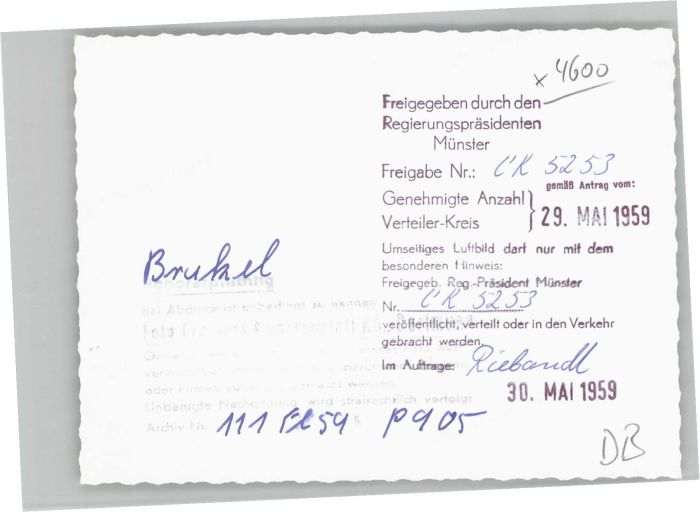 x 4600
Freigegeben durch den
Regierungspräsidenten
Münster
Freigabe Nr.: CK 5253
gemäß Antrag vom:
Genehmigte Anzahl
Verteiler-Kreis
29. MAI 1959
Umseitiges Luftbild darf nur mit dem
besonderen Hinweis:
Freigegeb. Reg.-Präsident Münster
Nr. CK 5253
veröffentlicht, verteilt oder in den Verkehr
gebracht werden.
Im Auftrage: Riebandt
30. MAI 1959
Brukel
Bei Abdruck ist unbedingt zu nennen
Foto
oder Firmen
Unbefugte wird strafrechtlich verfolgt
Archiv Nr. 111 59 P905
DB